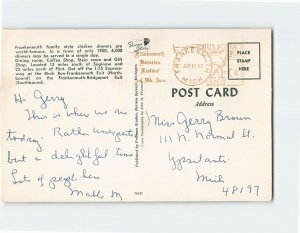 Frankenmuth family style chicken dinners are
world-famous. In a town of only 1900, 6,000
dinners may be served in a single day.
Dining room, Coffee Shop, Stein room and Gift
Shop. Located 12 miles south of Saginaw and
22 miles north of Flint. Get off the I-75 Express-
way at the Birch Run-Frankenmuth Exit (North-
bound) or the Frankenmuth-Bridgeport Exit
Hi Gerry
This is where we are
today. Rather unexpected
but a delightful time
Lots of people here
Mable M
Frankenmuth
Bavarian
Festival
FRANKENMUTH
MICH
PLACE
STAMP
HERE
POST CARD
Address
Miss Gerry Brown
111 N. Normal St.
Ypsilanti
Mich
48197